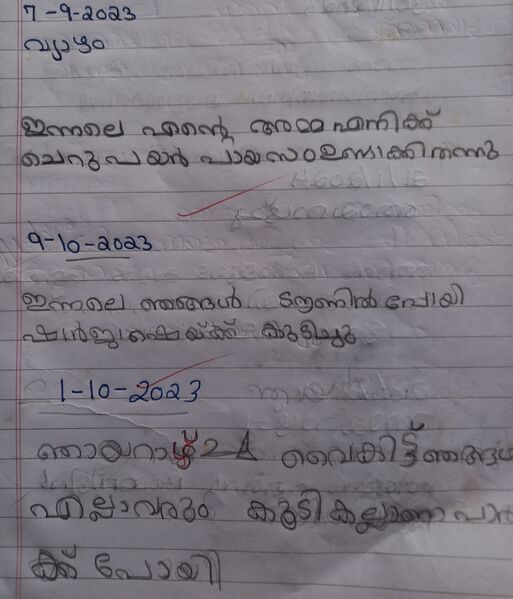 7-9-2023
വ്യാഴം
ഇന്നലെ എന്റെ അമ്മ എനിക്ക്
ചെറുപയർ പായസം ഉണ്ടാക്കി തന്നു
9-10-2023
ഇന്നലെ ഞങ്ങൾ ടൗണിൽ പോയി
ഷാർജാ ഷെയ്ക്ക് കുടിച്ചു
1-10-2023
ഞായറാഴ്ച വൈകിട്ട് ഞങ്ങൾ
എല്ലാവരും കൂടി കല്ല്യാണ പാർ
ക്ക് പോയി